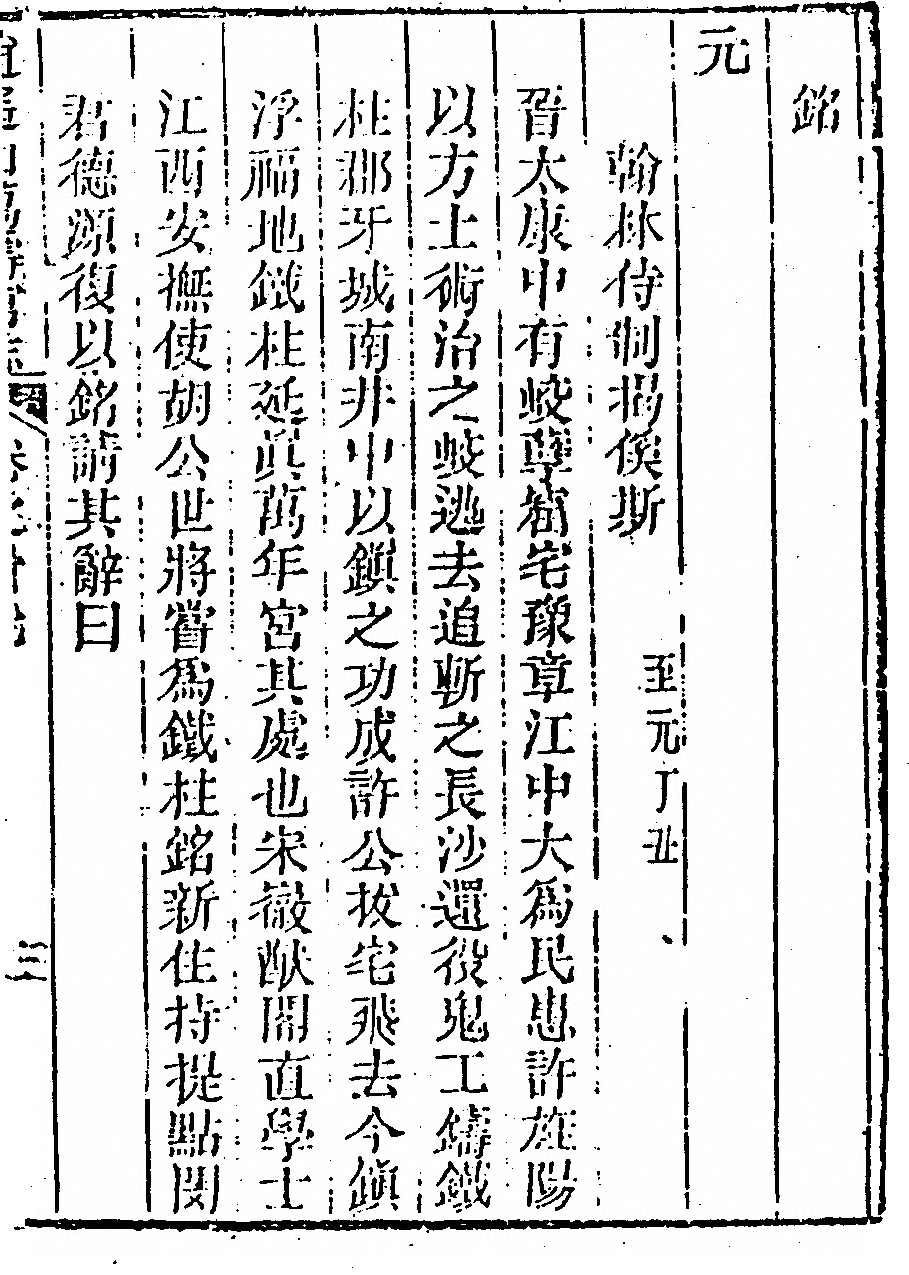 銘
元
翰林侍制揭傒斯 至元丁丑
晉太康中有蛟孽窟宅豫章江中大為民患許旌陽
以方士術治之蛟逃去追斬之長沙還役鬼工鑄鐵
柱郡牙城南井中以鎮之功成許公拔宅飛去今鎮
浮福地鐵柱延眞萬年宮其處也宋徽猷閣直學士
江西安撫使胡公世將嘗爲鐵柱銘新住持提點閔
君德源復以銘請其辭曰
三